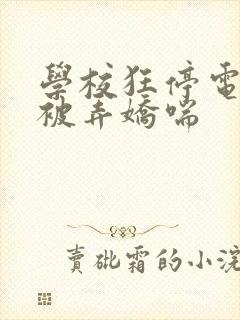 學校狂停電
被弄嬌喘
賣砒霜的小浣